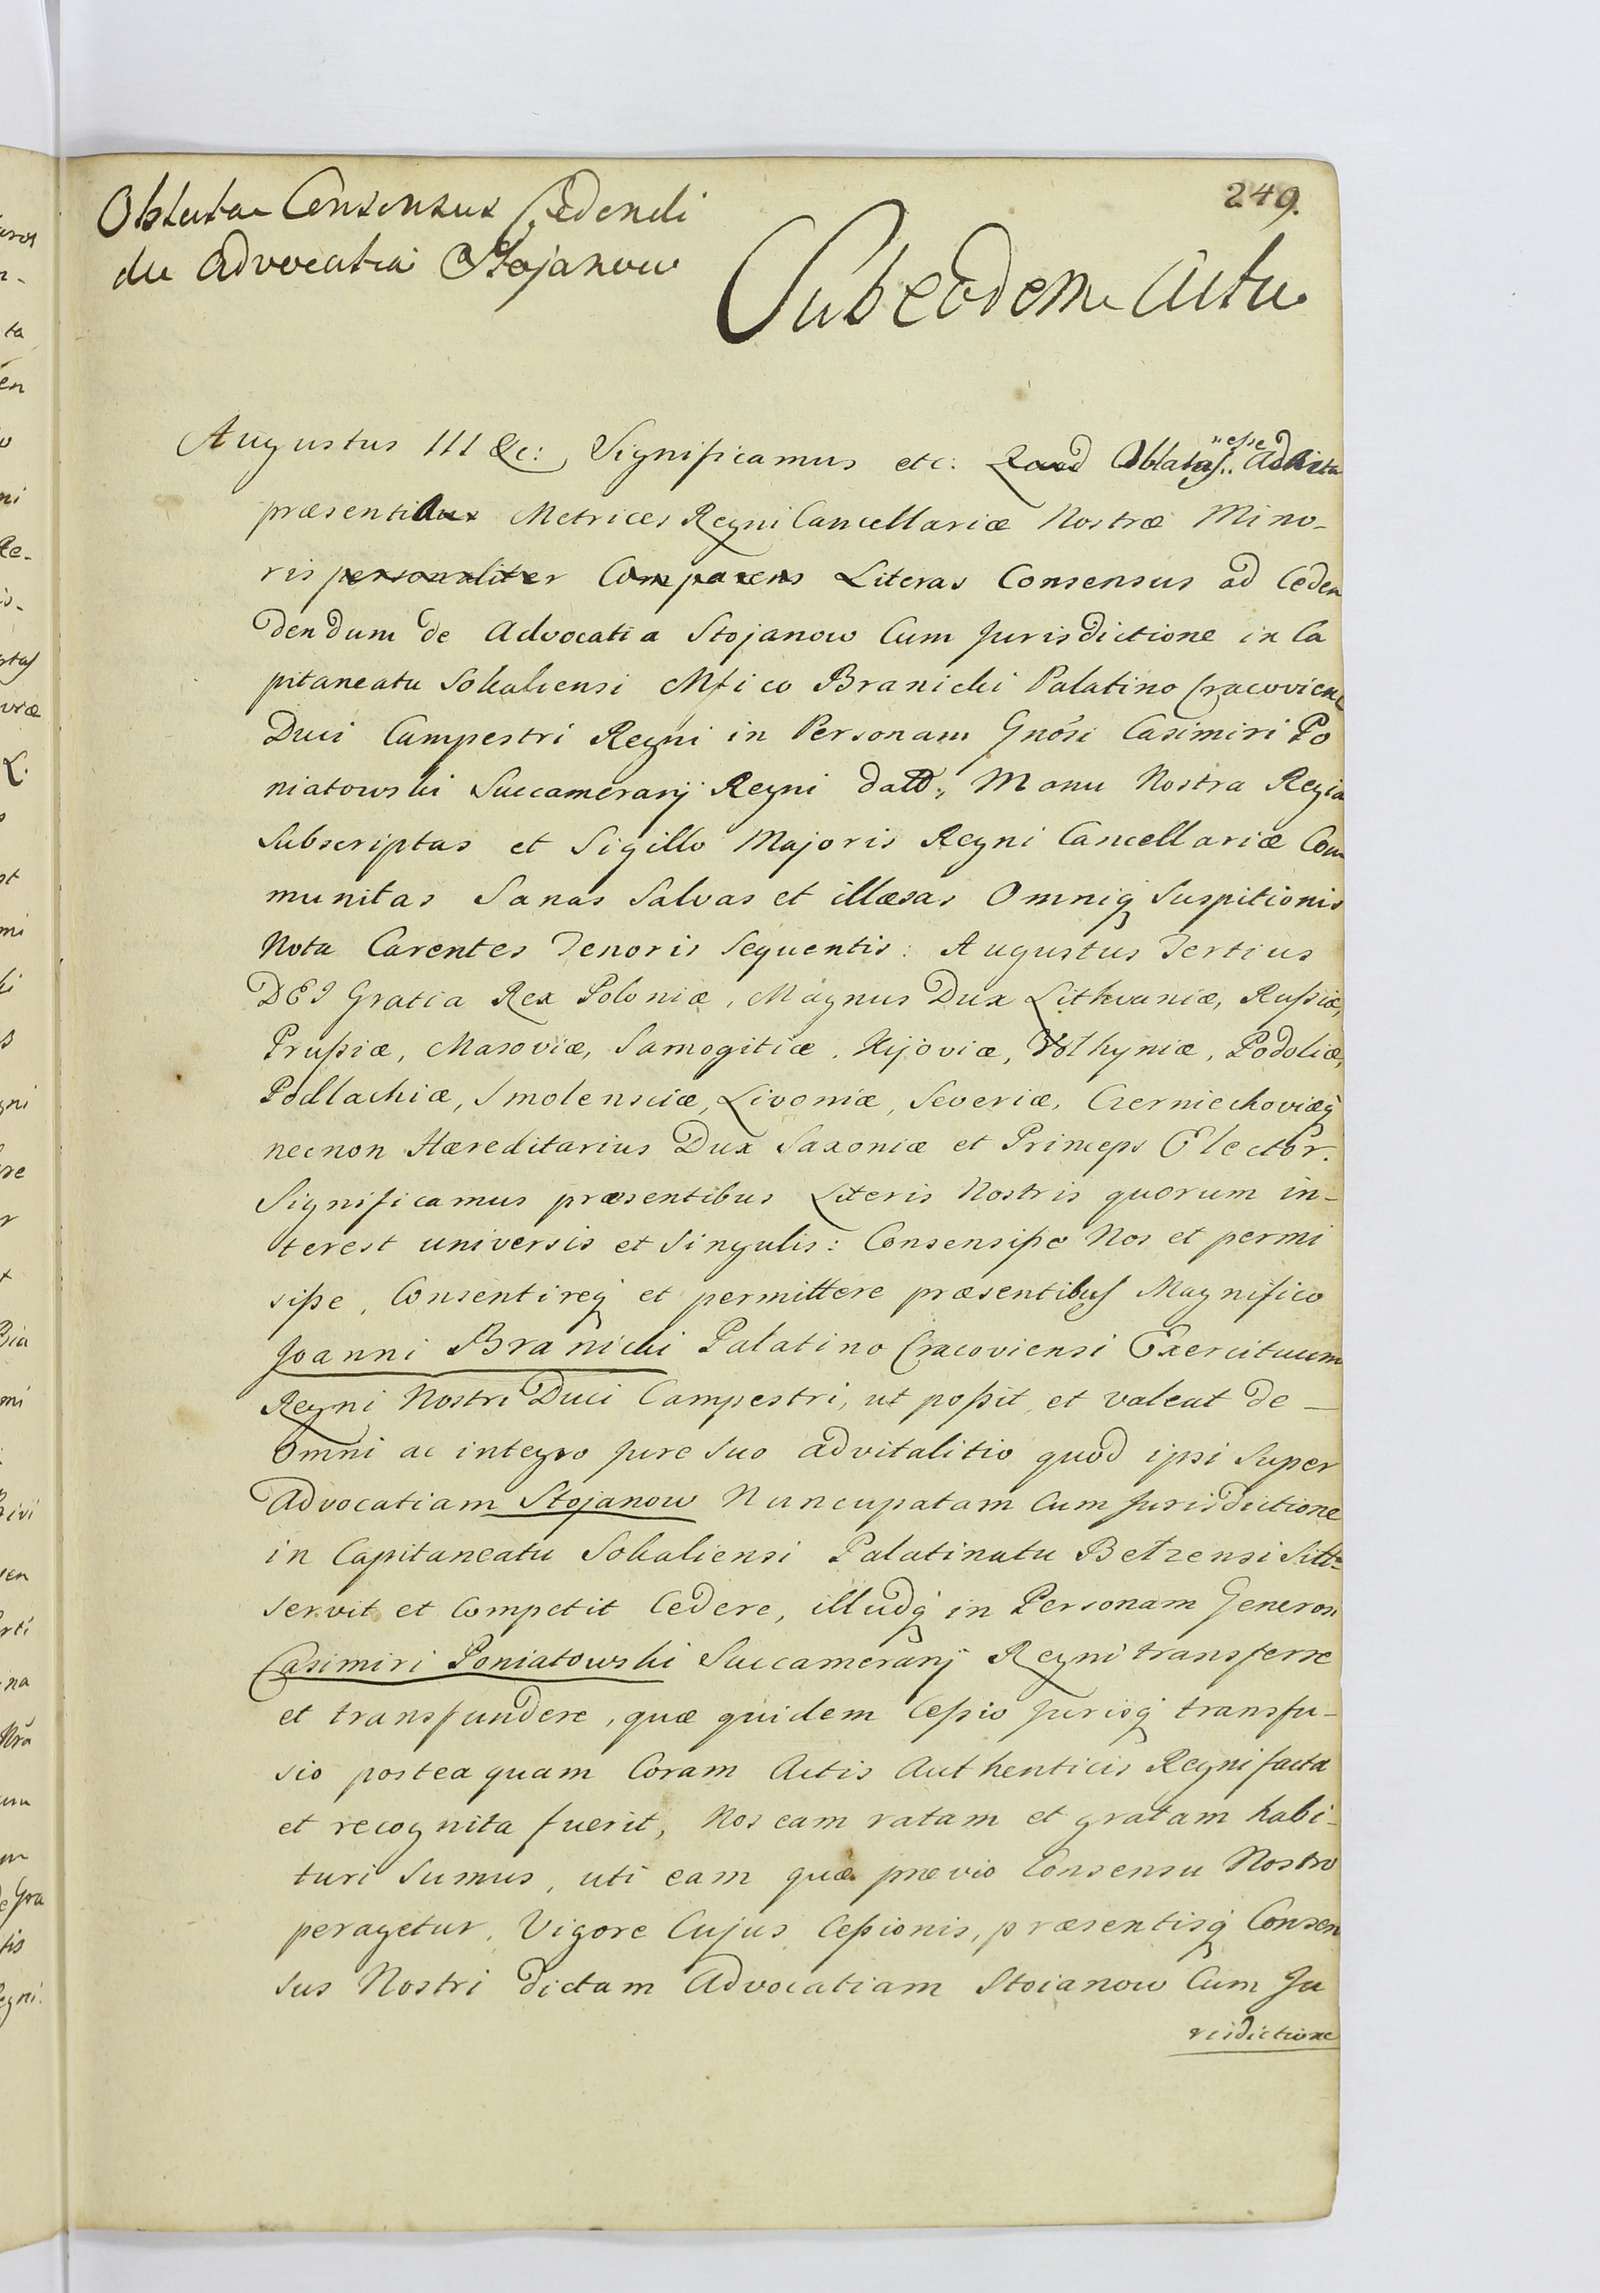 249.
Oblata Consensus Cedendi
de Advocatia Stojanow
Sub eodem Actu
Augustus III &c: Significamus etc. Oblatas esse ad Acta
præsentibus Metrices Regni Cancellariæ Nostræ Mino-
ris personaliter Comparens Literas Consensus ad Ceden
dendum de Advocatia Stojanow Cum Jurisdictione in Ca
pitaneatu Sokaliensi Mfico Branicki Palatino Cracovien
Duci Campestri Regni in Personam Gnosi Casimiri Po
niatowski Succamerarij Regni datt., Manu Nostra Regia
Subscriptas et Sigillo Majoris Regni Cancellariæ Com
munitas Sanas Salvas et illæsas Omniq Suspitionis
Nota Carentes Tenoris Sequentis: Augustus Tertius
DEI Gratia Rex Poloniæ, Magnus Dux Lithvaniæ, Russiæ,
Prussiæ, Masoviæ, Samogitiæ, Kijoviæ, Volhyniæ, Podoliæ,
Podlachiæ, Smolensciæ, Livoniæ, Severiæ, Czerniechoviæq
necnon Hæreditarius Dux Saxoniæ et Princeps Elector.
Significamus præsentibus Literis Nostris quorum in-
terest universis et Singulis: Consensisse Nos et permi
sisse, Consentireq et permittere præsentibus Magnifico
Joanni Branicki Palatino Cracoviensi Exercituum
Regni Nostri Duci Campestri, ut possit et valeat de -
Omni ac integro Jure Suo advitalitio quod ipsi Super
Advocatiam Stojanow Nuncupatam Cum Jurisdictione
in Capitaneatu Sokaliensi Palatinatu Belzensi Sitt
servit et Competit Cedere, illudq in Personam Generosi
Casimiri Poniatowski Succamerarij Regni transferre
et transfundere, quæ quidem Cessio Jurisq transfu-
sio postea quam Coram Actis Authenticis Regni facta
et recognita fuerit, Nos eam ratam et gratam habi-
turi Sumus, uti eam quæ prævio Consensu Nostro
peragetur, Vigore Cujus Cessionis, præsentisq Consen
sus Nostri dictam Advocatiam Stoianow Cum Ju
risdictione